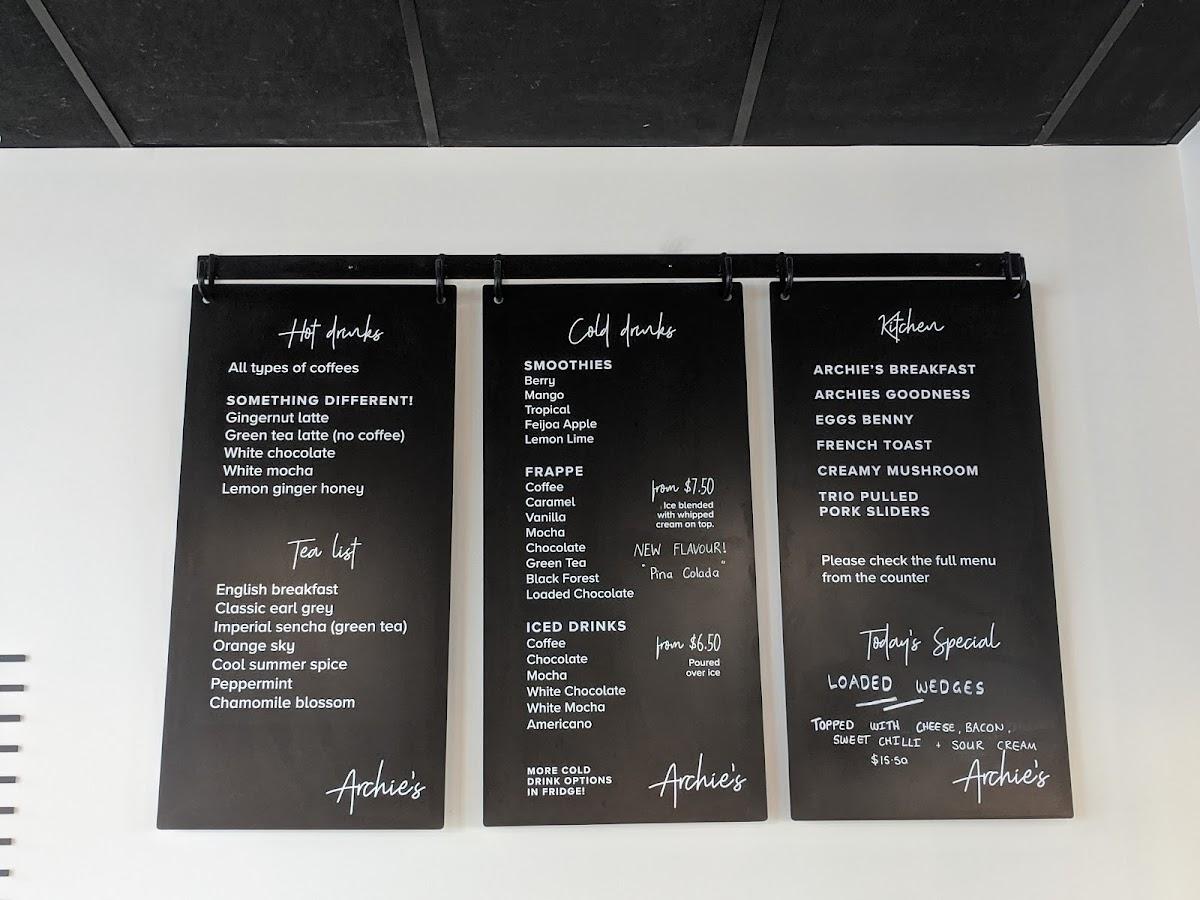 Hot drinks
All types of coffees
SOMETHING DIFFERENT!
Gingernut latte
Green tea latte (no coffee)
White chocolate
White mocha
Lemon ginger honey
Tea list
English breakfast
Classic earl grey
Imperial sencha (green tea)
Orange sky
Cool summer spice
Peppermint
Chamomile blossom
Archie's
Cold drinks
SMOOTHIES
Berry
Mango
Tropical
Feijoa Apple
Lemon Lime
FRAPPE
Coffee
Caramel
Vanilla
Mocha
Chocolate
Green Tea
Black Forest
Loaded Chocolate
from $7.50
Ice blended
with whipped
cream on top.
NEW FLAVOUR!
"Pina Colada"
ICED DRINKS
Coffee
Chocolate
Mocha
White Chocolate
White Mocha
Americano
from $6.50
Poured
over ice
MORE COLD
DRINK OPTIONS
IN FRIDGE!
Archie's
Kitchen
ARCHIE'S BREAKFAST
ARCHIES GOODNESS
EGGS BENNY
FRENCH TOAST
CREAMY MUSHROOM
TRIO PULLED
PORK SLIDERS
Please check the full menu
from the counter
Today's Special
LOADED WEDGES
TOPPED WITH CHEESE, BACON,
SWEET CHILLI + SOUR CREAM
$15.50
Archie's